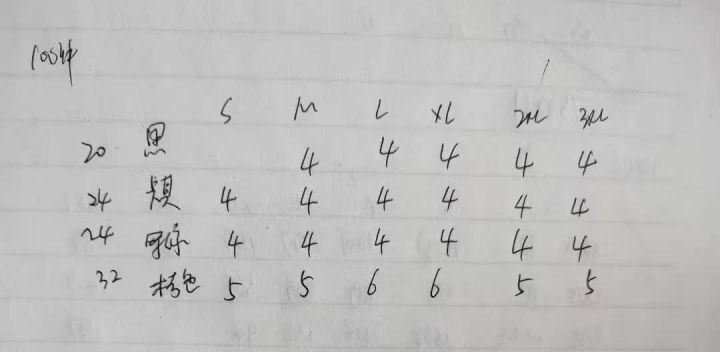 100件
S M L XL 2XL 3XL
20 黑 4 4 4 4 4
24 4 4 4 4 4 4
24 4 4 4 4 4 4
32 棕色 5 5 6 6 5 5